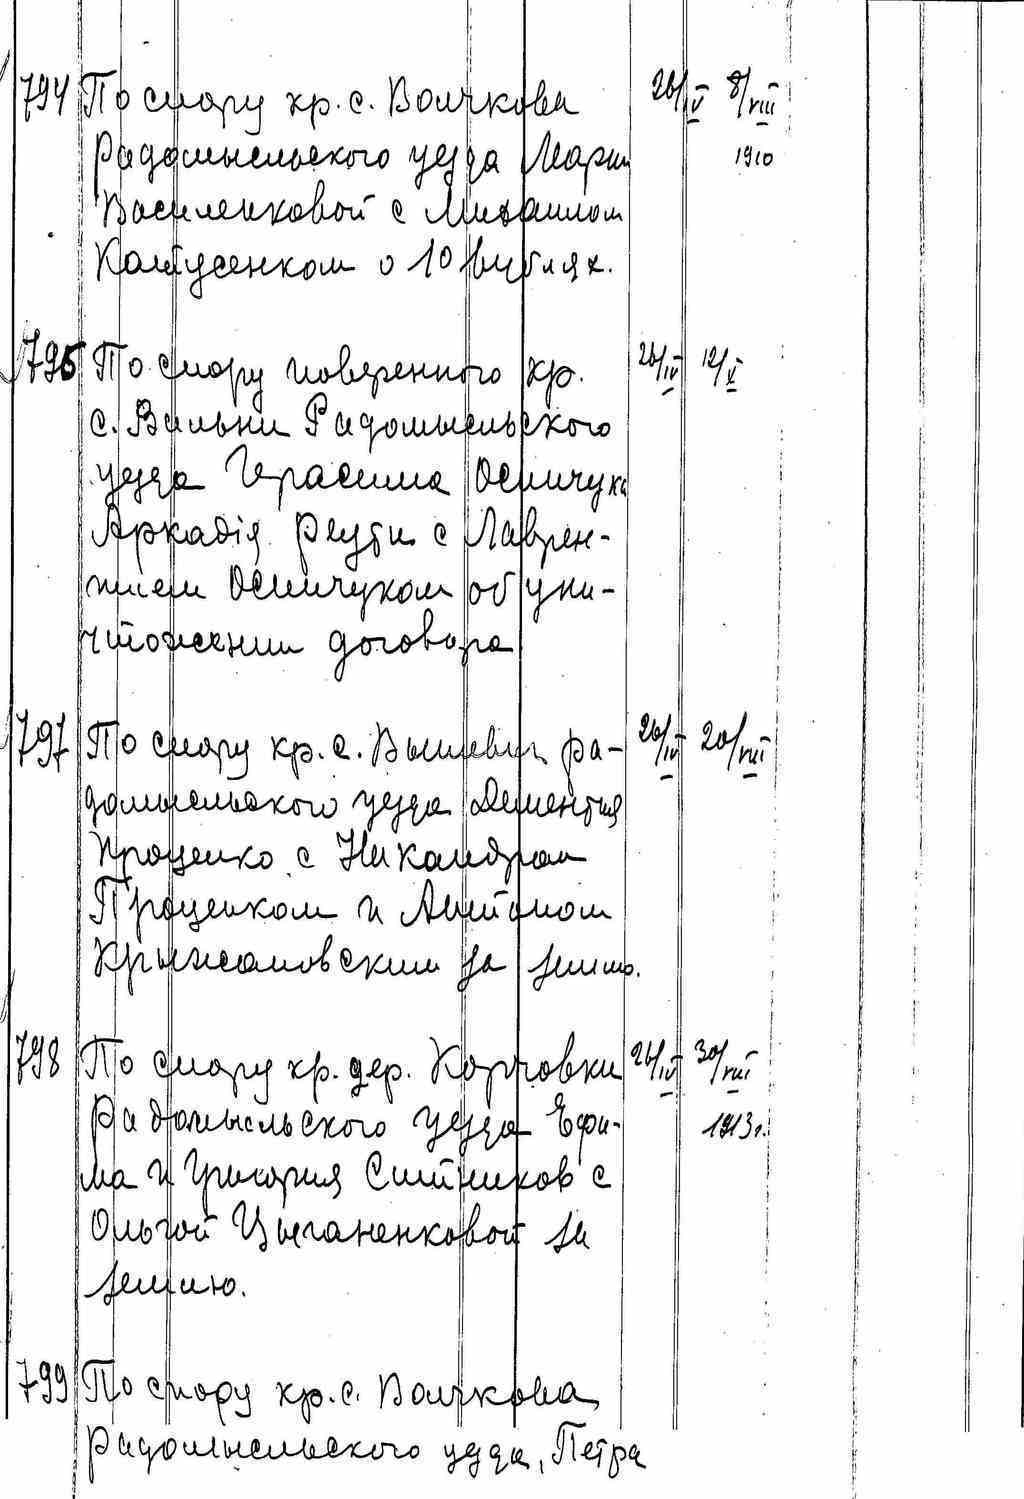 794 По спору кр. с. Волчкова 26/IV 8/VIII
Радомысльского уезда Марии 1910
Василенковой с Михаилом
Колтусенком о 10 рублях.
795 По спору поверенного кр. 26/IV 12/V
с. Вильни Радомысльского
уезда Герасима Осипчука
Аркадія Реути с Лаврен-
тием Осипчуком об уни-
чтожении договора
797 По спору кр. с. Вышевич ра- 26/IV 20/VIII
домысльского уезда Дементия
Проценко с Никандром
Проценком и Антоном
Крыжановским за землю.
798 По спору кр. дер. Корчовки 26/IV 30/VIII
Радомысльского уезда Ефи- 1913 г.
ма и Григория Ситников с
Ольгой Цыганенковой за
землю.
799 По спору кр. с. Волчкова
Радомысльского уезда, Петра